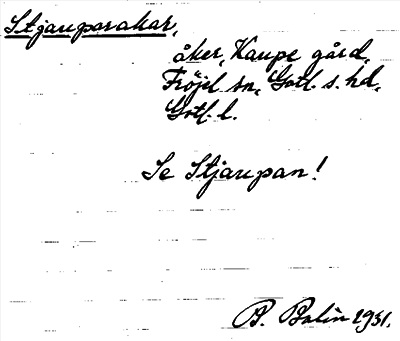 Stjauparakar,
åker, Kaupe gård,
Fröjel sn, Gotl. s. hd,
Gotl. l.
Se Stjaupan!
B. Bolin 1931.